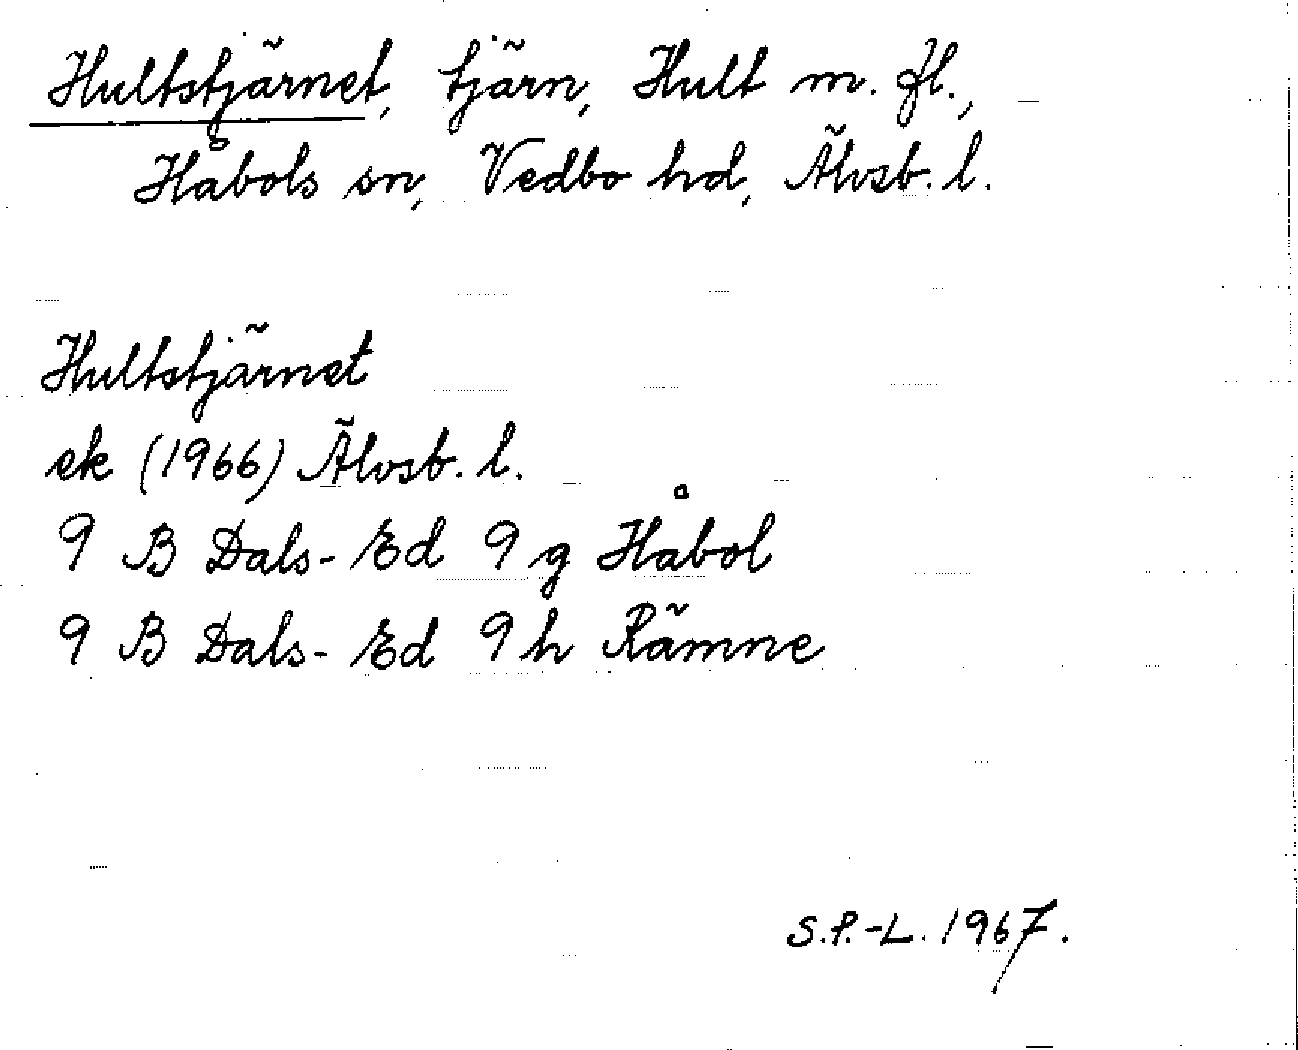 Hultstjärnet, tjärn, Hult m. fl.,
Håbols sn, Vedbo hd, Älvsb. l.
Hultstjärnet
ek (1966) Älvsb. l.
9 B Dals-Ed 9 g Håbol
9 B Dals-Ed 9 h Rämne
S.P.-L. 1967.